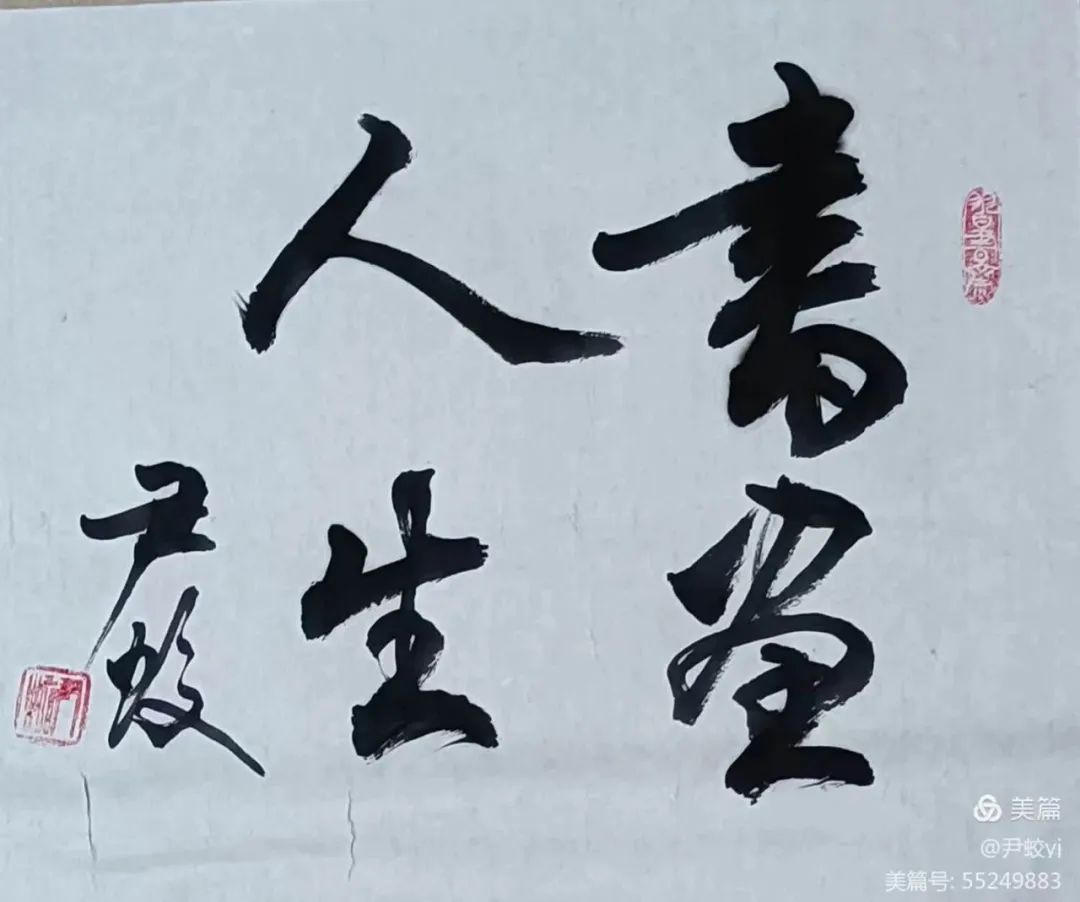 書畫
人生
尹蛟
美篇
@尹蛟yi
美篇号: 55249883